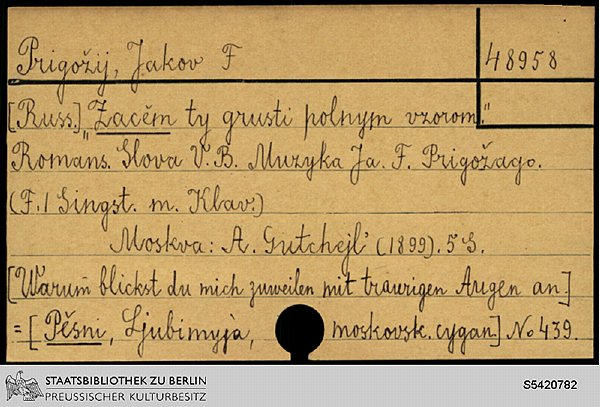 Prigožij, Jakov F
48958
[Russ.] „Začěm ty grusti polnym vzorom."
Romans. Slova V. B. Muzyka Ja. F. Prigožago.
(F. 1 Singst. m. Klav.)
Moskva: A. Gutchejl' (1899). 5 S.
[Warum blickst du mich zuweilen mit traurigen Augen an]
= [Pěsni, Ljubimyja, moskovsk. cygan] No 439
STAATSBIBLIOTHEK ZU BERLIN
PREUSSISCHER KULTURBESITZ
S5420782